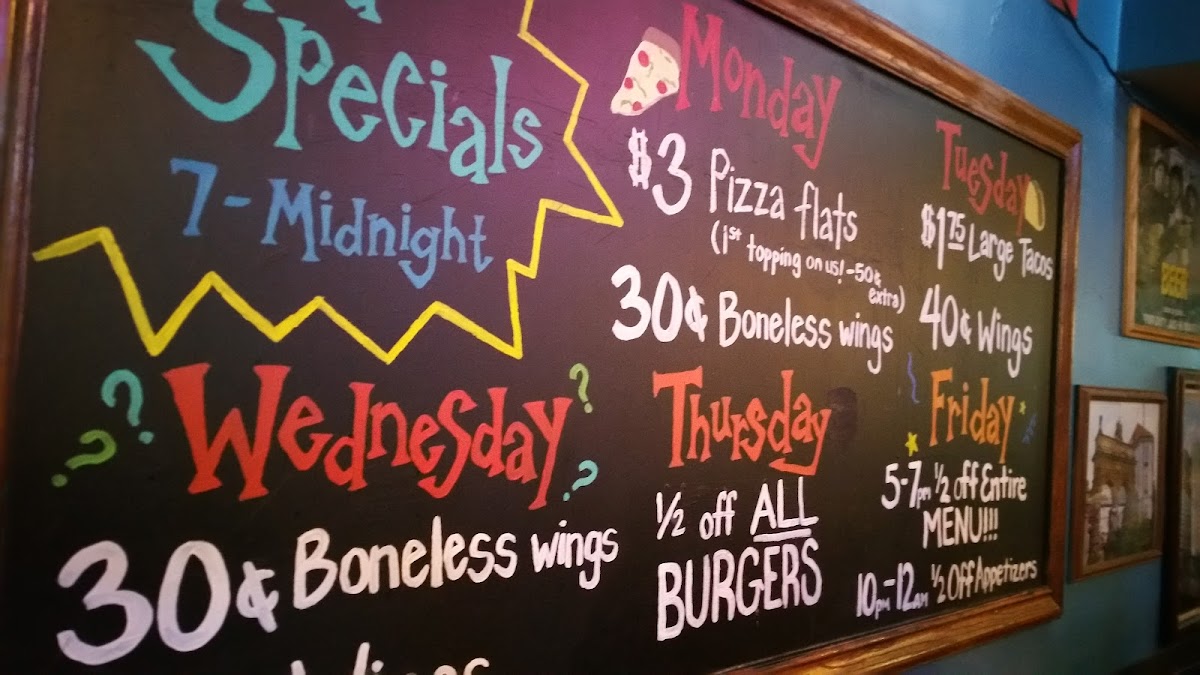 Specials
7-Midnight
Monday
$3 Pizza flats
(1st topping on us! -50¢
extra)
30¢ Boneless wings
Tuesday
$1.75 Large Tacos
40¢ Wings
? Wednesday ?
? ?
30¢ Boneless wings
Wings
Thursday
½ off ALL
BURGERS
Friday
5-7pm ½ off Entire
MENU!!!
10pm-12am ½ Off Appetizers
BEER